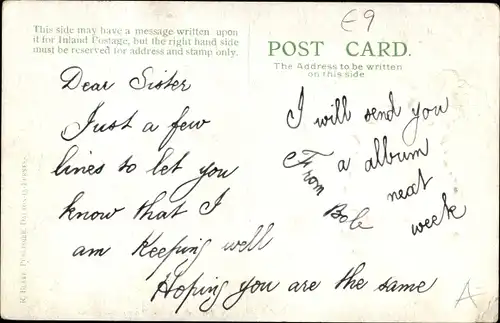 This side may have a message written upon
it for Inland Postage, but the right hand side
must be reserved for address and stamp only.
POST CARD.
The Address to be written
on this side
E9
Dear Sister
Just a few
lines to let you
know that I
am Keeping well
Hoping you are the same
I will send you
a album
next
week
From
Bole
A